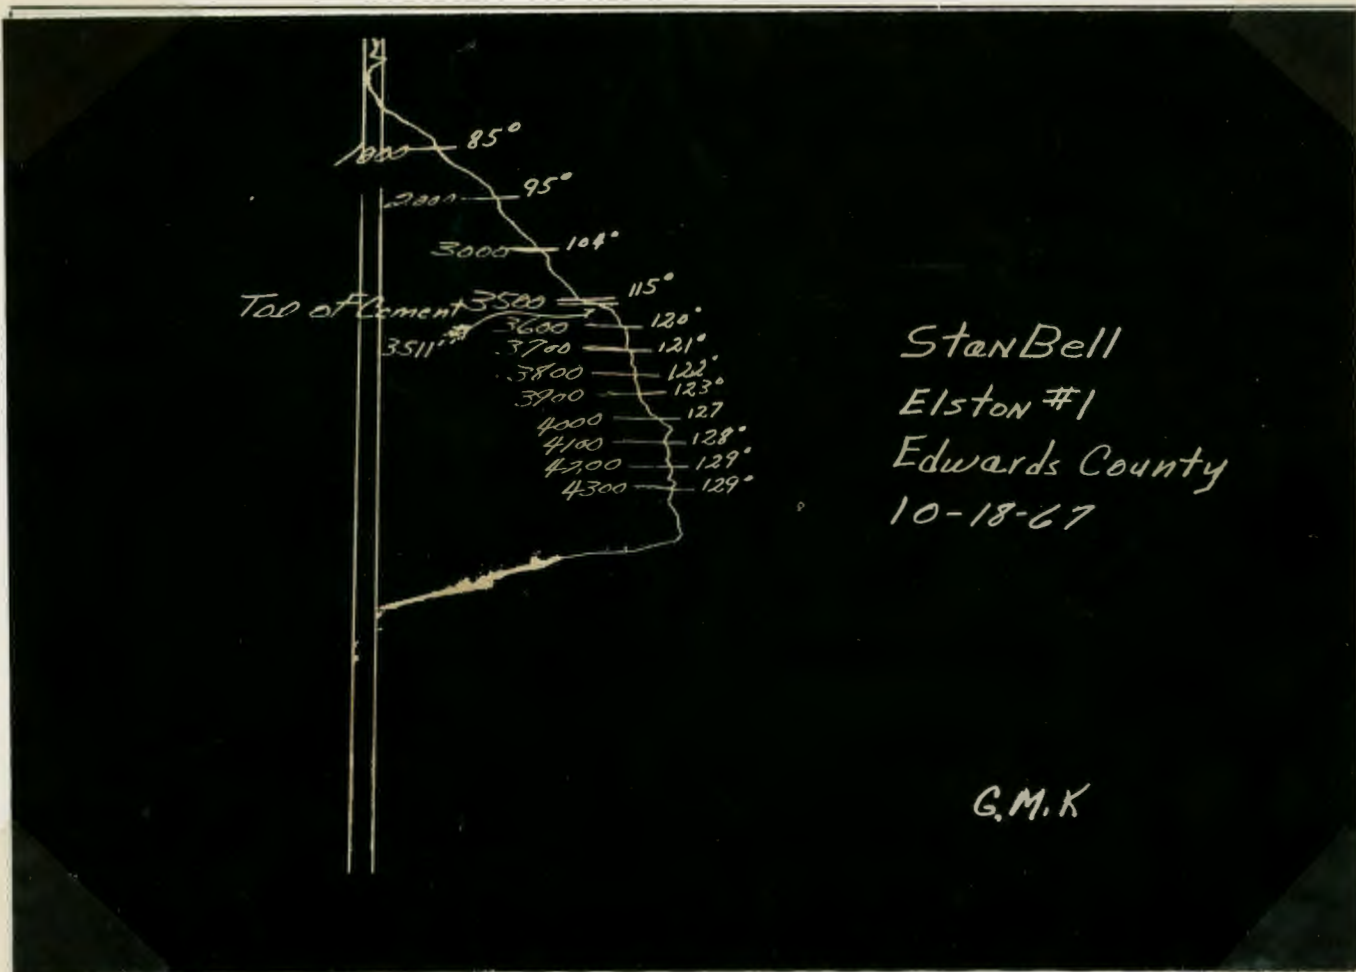 1000 85°
2000 95°
3000 104°
Top of Cement 3500 115°
3511'
3600 120°
3700 121°
3800 122°
3900 123°
4000 127
4100 128°
4200 129°
4300 129°
StanBell
Elston #1
Edwards County
10-18-67
G.M.K